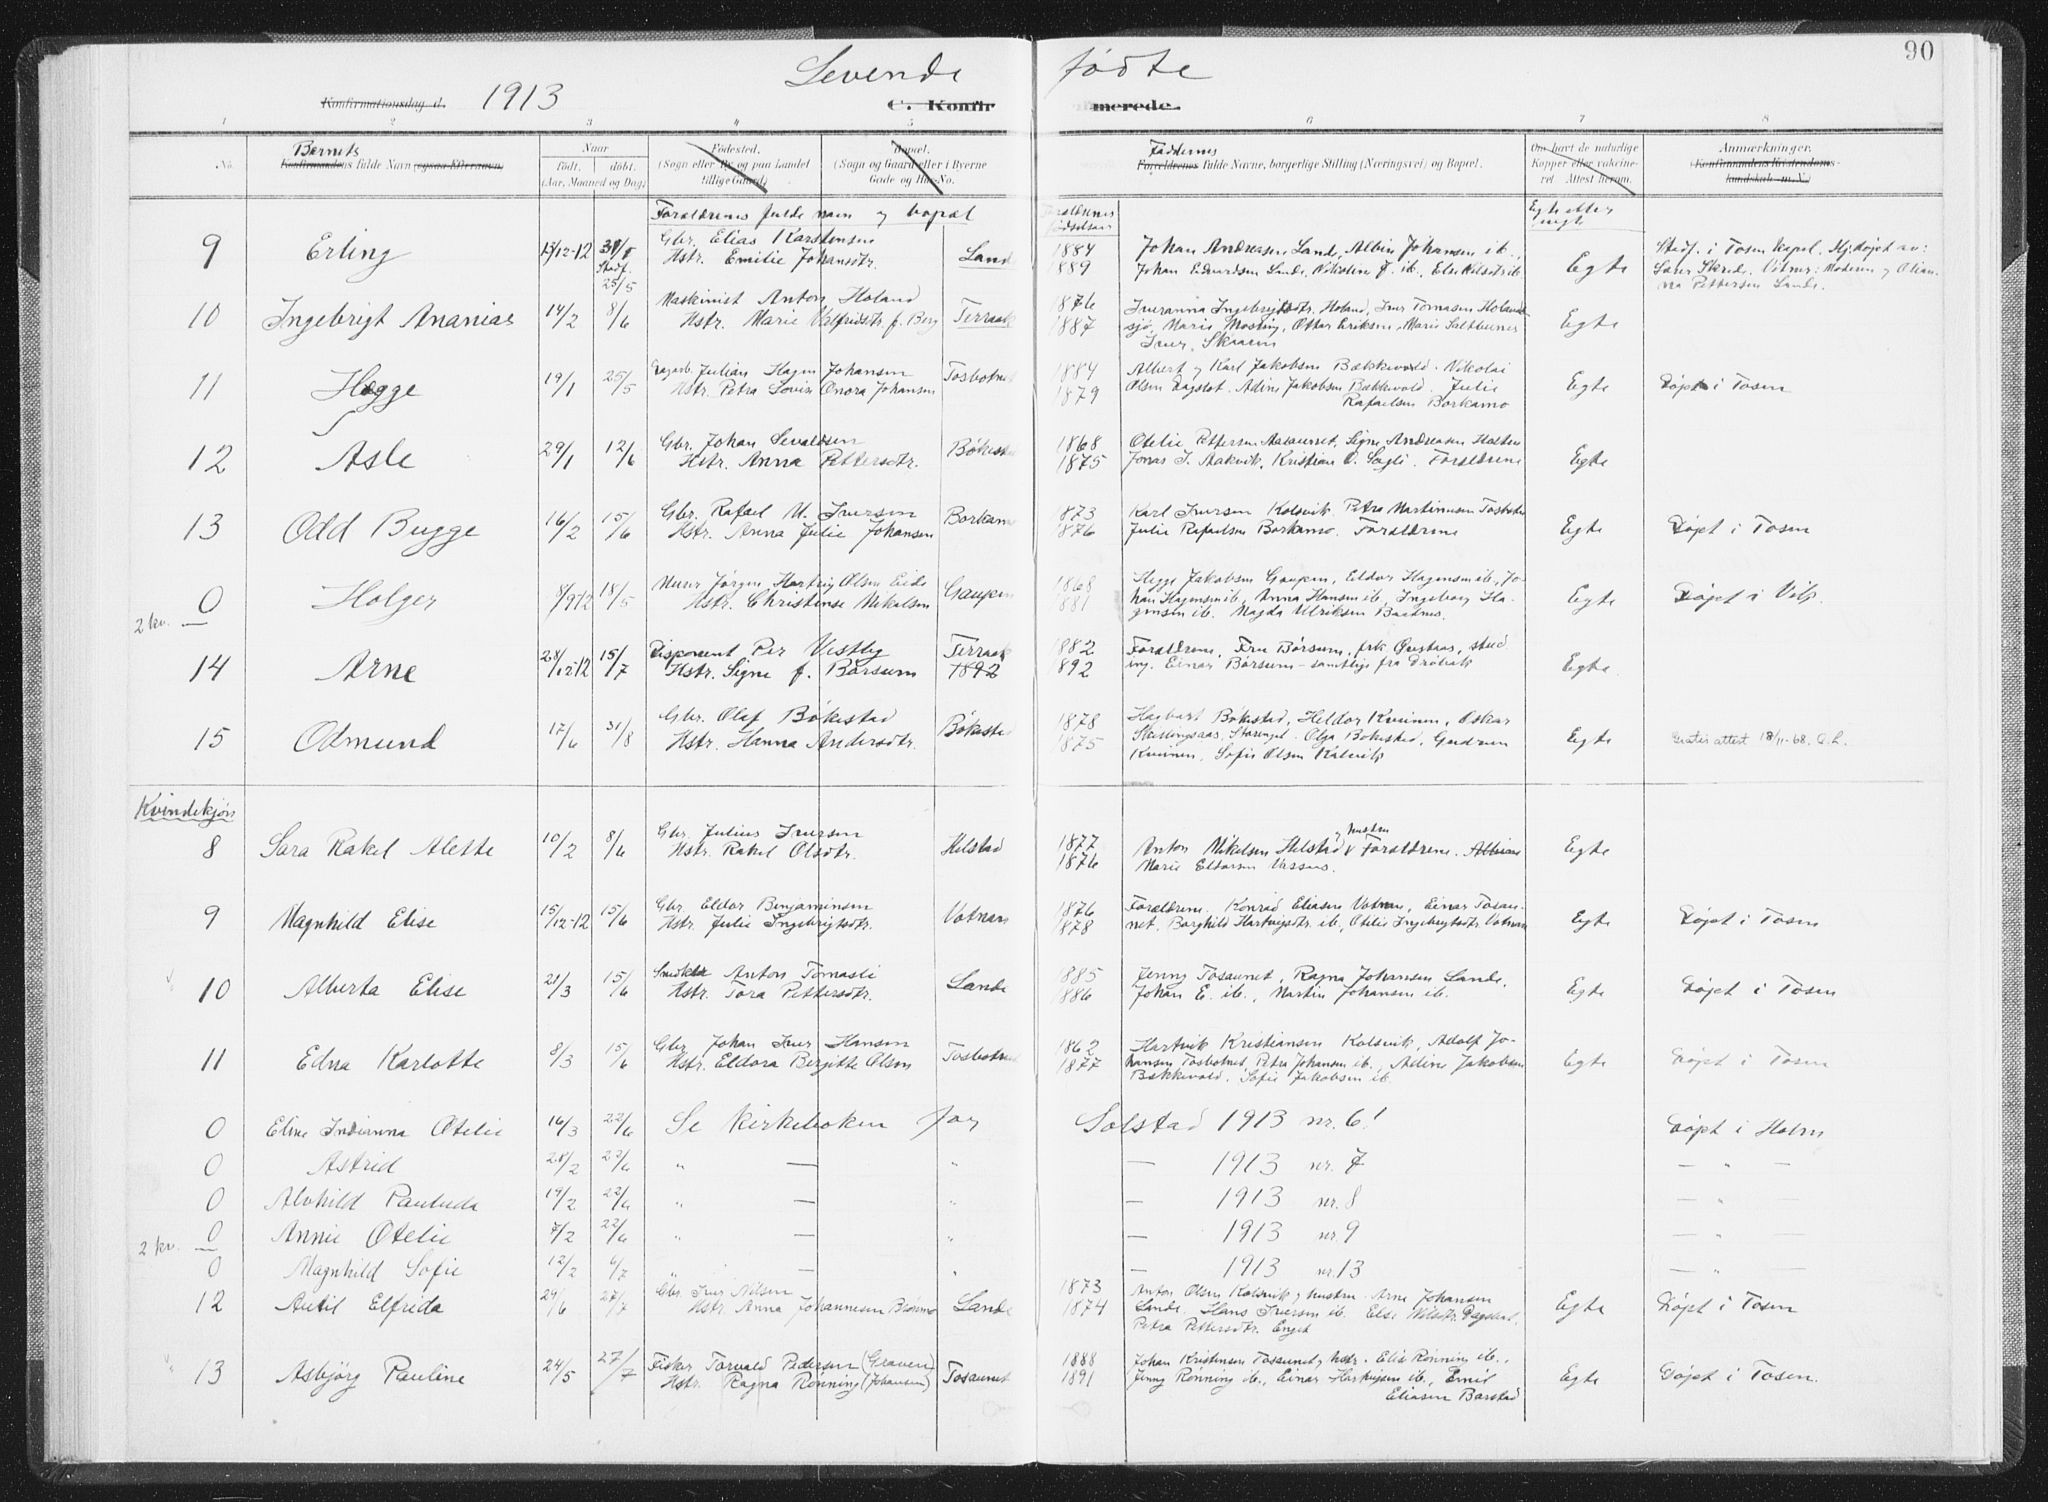 90
Levende fødte
Konfirmationsdag d. 1913 C. Konfirmerede.
1 2 3 4 5 6 7 8
No. Barnets Konfirmandens fulde Navn (ogsaa Efternavn) Naar Født. døbt. (Aar, Maaned og Dag) Fødested. (Sogn eller By og paa Landet tillige Gaard) Bopæl. (Sogn og Gaard eller i Byerne Gade og Hus-No. Faddernes Forældrenes fulde Navne, borgerlige Stilling (Næringsvei) og Bopæl. Om havt de naturlige Kopper eller vaccineret. Attest herom. Anmærkninger. (Konfirmandens Kristendomskundskab m. V.)
Forældrenes fulde navn og bopæl Forældrenes fødselsaar Egte eller uegte
9 Erling 15/12-12 31/5 Stadf. 25/5 Gbr. Elias Karstensen Hstr. Emilie Johansdtr. Lande 1884 1889 Johan Andreasen Lande, Albin Johansen ib.
Johan Edvardsen Lande, Nikoline J. ib., Else Nilsdtr ib Egte Stadf. i Tosen Kapel. Hj.døpt av:
Lars Skrede. Vitner: Moderen og Oliana Pettersen Lande.
10 Ingebrigt Ananias 14/2 8/6 Maskinist Anton Holand Hstr. Marie Valfridsdtr. f. Berg Terraak 1876 1887 Iveranna Ingebrigtsdtr. Holand, Iver Tomasen Holand
sjø, Marie Mosting, Ottar Eriksen, Marie
Iver Skaaren Egte
11 Hegge 19/1 25/5 Dagarb. Julian Hagen Johansen Hstr. Petra Lovise Onora Johansen Tosbotnet 1884 1879 Albert og Karl Jakobsen Bækkevold. Nikolai
Olsen Dagslot. Adine Jakobsen Bækkevold. Julie
Rafaelsen Borkamo Egte Døpt i Tosen
12 Asle 29/1 12/6 Gbr. Johan Sevaldsen Hstr. Anna Pettersdtr. Bøkestad 1868 1875 Otelie Pettersen Aasaunet, Signe Andreasen Hosten
Jonas J. Aakvik, Kristian O. Sagli. Forældrene Egte
13 Odd Bugge 16/2 15/6 Gbr. Rafael M. Iversen Hstr. Anna Julie Johansen Borkamo 1873 1876 Karl Iversen Kolsvik. Petra Martinusen Tosbotn
Julie Rafaelsen Borkamo. Forældrene Egte Døpt i Tosen
2 kv. 0 Holger 8/912 18/5 Murer Jørgen Hartvig Olsen Eide Hstr. Christense Mikalsen Gaupen 1868 1881 Hegge Jakobsen Gaupen, Eldar Hagensen ib., Johan
Hagensen ib., Anna Hansen ib., Ingeborg Hagensen
ib. Magda Ulriksen Egte Døpt i Velf.
14 Arne 28/12-12 15/7 Disponent Per Vestby Hstr. Signe f. Børsum Terraak 1892 1882 1892 Forældrene, Fru Børsum, frk. stud
ing. Einar Børsum – samtlige fra Drøbak Egte
15 Odmund 17/6 31/8 Gbr. Olaf Bøkestad Hstr. Hanna Andersdtr. Bøkestad 1878 1875 Hagbart Bøkestad, Heldor Kvinen, Oskar
Storengel. Olga Bøkestad, Gudrun
Kvinen, Sofie Olsen Kalvik Egte Gratis attest 18/11-68. O.L.
Kvindekjøn
8 Sara Rakel Alette 10/2 8/6 Gbr. Julius Iversen Hstr. Rakel Olsdtr. Helstad 1877 1876 Anton Mikelsen Helstad og hustru Forældrene.
Marie Eldorsen Vassås. Egte
9 Magnhild Elise 15/12-12 15/6 Gbr. Eldor Benjaminsen Hstr. Julie Ingebrigtsdtr. Votnan 1876 1878 Forældrene. Konrad Eliasen Votnan, Einar Tosaunet,
Borghild Hartvigsdtr. ib., Otelie Ingebrigtsdtr. Votnan Egte Døpt i Tosen
10 Alberta Elise 21/3 15/6 Anton Tomasli Hstr. Tora Pettersdtr. Lande 1885 1886 Jenny Tosaunet, Ragna Johansen Lande.
Johan E. ib., Martin Johansen ib. Egte Døpt i Tosen
11 Edna Karlotte 8/3 15/6 Gbr. Johan Iver Hansen Hstr. Eldora Bergitte Olsen Tosbotnet 1862 1877 Hartvik Kristiansen Kolsvik, Adolf Johansen
Tosbotnet, Petra Johansen ib., Adine Jakobsen
Bækkevold. Sofie Jakobsen ib. Egte Døpt i Tosen
0 Eline Indianna Otelie 16/3 22/6 Se kirkeboken for Solstad 1913 nr. 6! Døpt i Holm
0 Astrid 28/2 22/6 " — " — 1913 nr. 7 — " —
0 Alvhild Pauluda 19/2 22/6 " — " — 1913 nr. 8 — " —
2 kv. 0 Annie Otelie 7/2 22/6 " — " — 1913 nr. 9 — " —
0 Magnhild Sofie 12/2 6/7 " — " — 1913 nr. 13 — " —
12 Autil Elfrida 29/6 27/7 Gbr. Iver Nilsen Hstr. Anna Johannesen Lande 1873 1874 Anton Olsen Kolsvik og hustru. Arne Johansen
Lande. Hans Iversen ib. Else Nilsdtr. Dagslot.
Petra Pettersdtr. Enget Egte Døpt i Tosen
13 Asbjørg Pauline 24/5 27/7 Fisker Torvald Pedersen (Graven) Hstr. Ragna Rønning (Johansen) Tosaunet 1888 1891 Johan Kristensen Tosaunet og hstr. Elise Rønning ib.,
Jenny Rønning ib., Einar Hartvigsen ib., Emil
Eliasen Barstad Egte Døpt i Tosen.